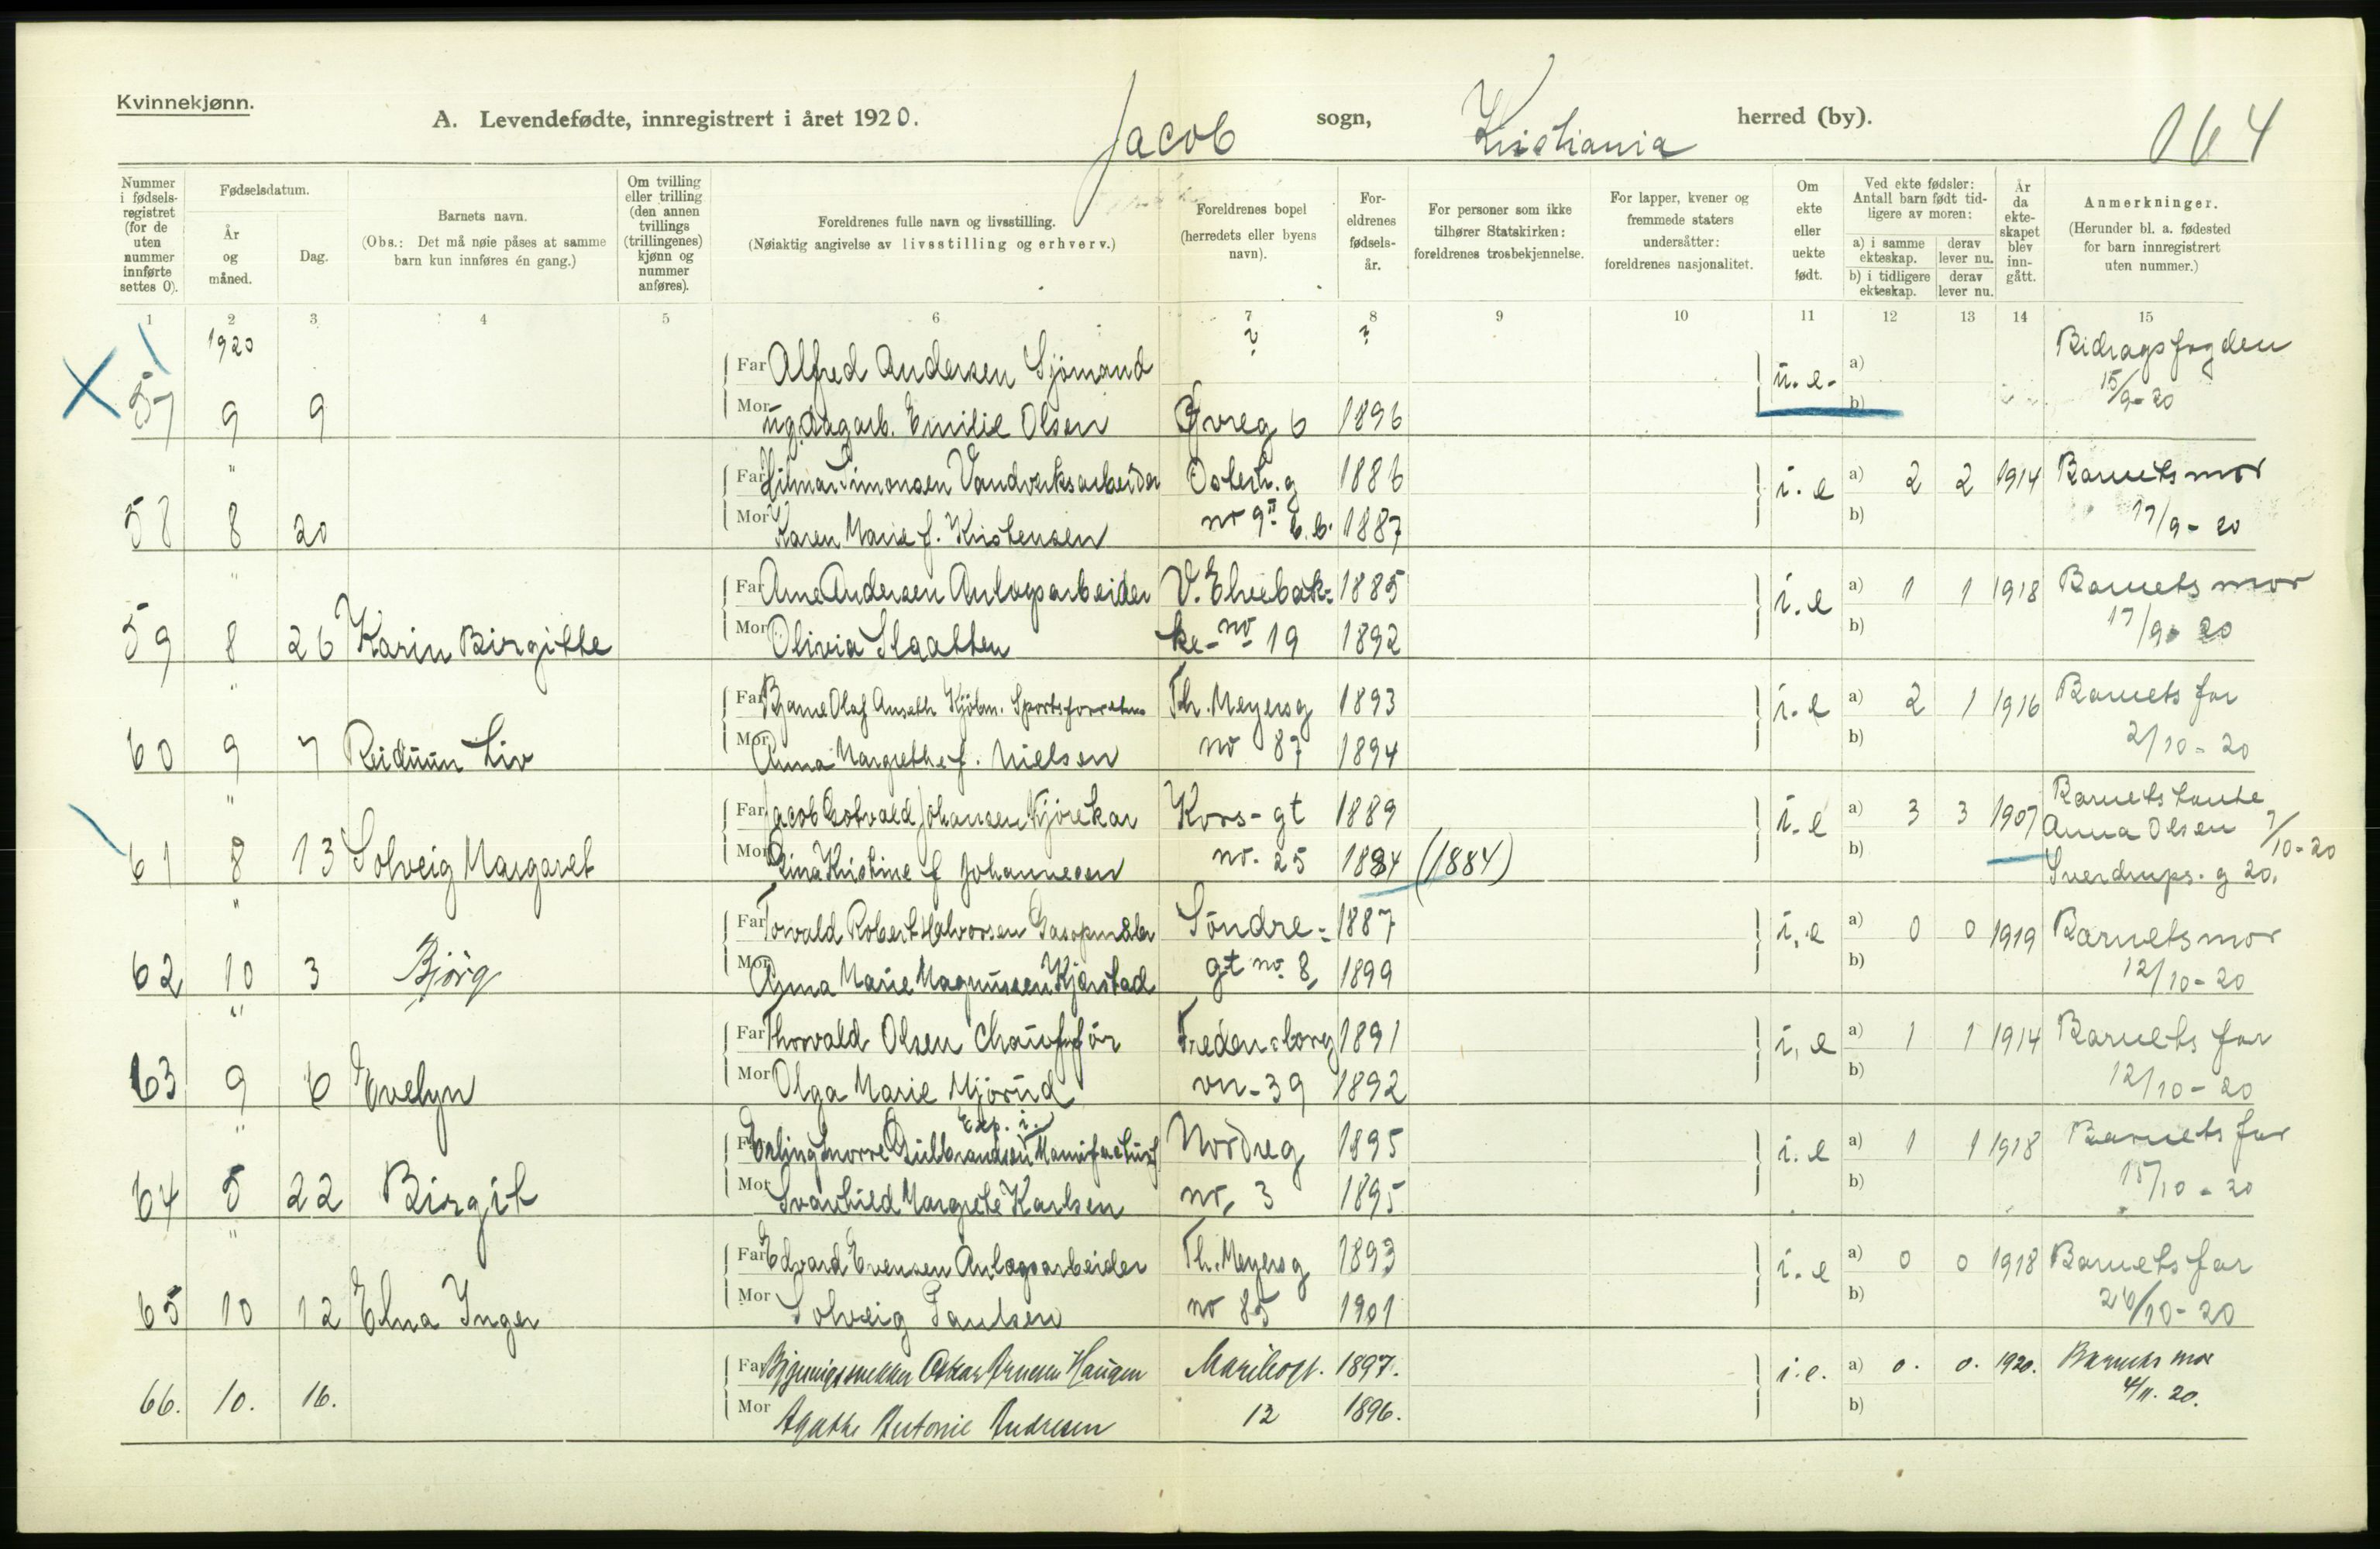 Kvinnekjønn.
A. Levendefødte, innregistrert i året 1920. Jacob sogn, Kristiania herred (by). 064
Nummer i fødselsregistret (for de uten nummer innførte settes 0).
Fødselsdatum.
År og måned.
Dag.
Barnets navn.
(Obs.: Det må nøie påses at samme barn kun innføres én gang.)
Om tvilling eller trilling (den annen tvillings (trillingenes) kjønn og nummer anføres).
Foreldrenes fulle navn og livsstilling.
(Nøiaktig angivelse av livsstilling og erhverv.)
Foreldrenes bopel (herredets eller byens navn).
Foreldrenes fødselsår.
For personer som ikke tilhører Statskirken: foreldrenes trosbekjennelse.
For lapper, kvener og fremmede staters undersåtter: foreldrenes nasjonalitet.
Om ekte eller uekte født.
Ved ekte fødsler: Antall barn født tidligere av moren:
a) i samme ekteskap. derav lever nu.
b) i tidligere ekteskap. derav lever nu.
År da ekteskapet blev inngått.
Anmerkninger.
(Herunder bl. a. fødested for barn innregistrert uten nummer.)
1 2 3 4 5 6 7 8 9 10 11 12 13 14 15
1920
Far Alfred Andersen Sjömand ? ? u.e. a) Bidragsfogden
57 9 9 Mor ug. dagarb. Emilie Olsen Øvreg 6 1896 b) 15/9-20
" Far Hilmar Simonsen Vandverksarbeider Osterh. g 1886 i.e a) 2 2 1914 Barnets mor
58 8 20 Mor Karen Marie f. Kristensen no 9 II b.b. 1887 b) 17/9-20
" Far Arne Andersen Anlægsarbeider V. Elvebak= 1885 i.e a) 1 1 1918 Barnets mor
59 8 26 Karin Birgitte Mor Olivia Slaatten ke- no 19 1892 b) 17/9 20
" Far Bjarne Olaf Anseth Kjöbm. Sportsforretn Th. Meyersg 1893 i.e a) 2 1 1916 Barnets far
60 9 7 Reidunn Liv Mor Anna Margrethe f. Nielsen no 87 1894 b) 2/10-20
" Far Jacob Gotvald Johansen Kjörekar Kors-gt 1889 i.e a) 3 3 1907 Barnets tante
61 8 13 Solveig Margaret Mor Lina Kristine f Johannesen no. 25 1884 (1884) b) Anna Olsen 7/10-20
Sverdrups. g 20.
" Far Torvald Robert Halvorsen Gasopmåler Söndre= 1887 i.e a) 0 0 1919 Barnets mor
62 10 3 Björg Mor Anna Marie Magnussen Kjærstad gt no. 8, 1899 b) 12/10-20
" Far Thorvald Olsen Chauffför Fredensborg 1891 i.e a) 1 1 1914 Barnets far
63 9 6 Evelyn Mor Olga Marie Mjörud vn-39 1892 b) 12/10-20
Exp. i.
" Far Erling Snorre Gulbrandsen Manufactur Nordreg 1895 i.e a) 1 1 1918 Barnets far
64 5 22 Birgit Mor Svanhild Margrete Karlsen no, 3 1895 b) 15/10-20
" Far Edvard Evensen Anlægsarbeider Th. Meyersg 1893 i.e a) 0 0 1918 Barnets far
65 10 12 Elna Inger Mor Solveig Paulsen no 85 1901 b) 26/10-20
Far Bygningssnekker Oskar Arnesen Haugen Maribogt. 1897. i.e. a) 0. 0. 1920. Barnets mor
66. 10. 16. Mor Agathe Antonie Andresen 12 1896. b) 4/11. 20.